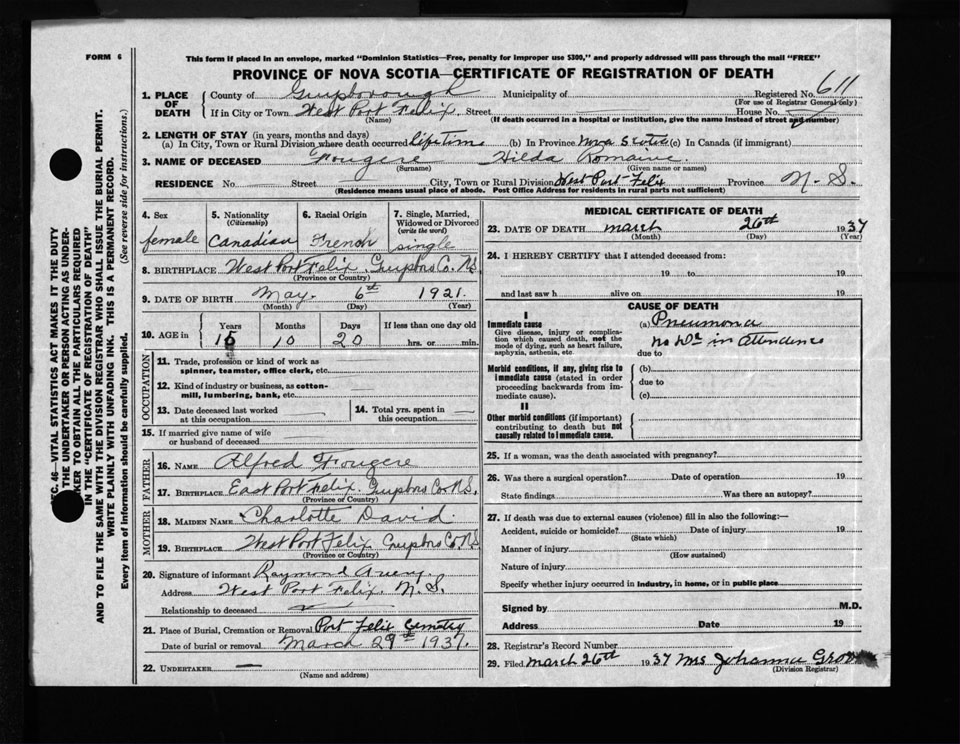 FORM 6
This form if placed in an envelope, marked "Dominion Statistics—Free, penalty for improper use $300," and properly addressed will pass through the mail "FREE"
PROVINCE OF NOVA SCOTIA—CERTIFICATE OF REGISTRATION OF DEATH
1. PLACE OF DEATH County of Guysborough Municipality of Registered No. 611
(For use of Registrar General only)
If in City or Town West Port Felix. Street House No.
(Name) (If death occurred in a hospital or institution, give the name instead of street and number)
2. LENGTH OF STAY (in years, months and days)
(a) In City, Town or Rural Division where death occurred lifetime (b) In Province Nova Scotia (c) In Canada (if immigrant)
3. NAME OF DECEASED Fougere Hilda Romaine.
(Surname) (Given name or names)
RESIDENCE No. Street City, Town or Rural Division West Port Felix Province N. S.
(Residence means usual place of abode. Post Office Address for residents in rural parts not sufficient)
4. Sex female
5. Nationality (Citizenship) Canadian
6. Racial Origin French
7. Single, Married, Widowed or Divorced (write the word) single
8. BIRTHPLACE West Port Felix. Guysboro Co. N.S.
(Province or Country)
9. DATE OF BIRTH May. 6th 1921.
(Month) (Day) (Year)
10. AGE in Years Months Days If less than one day old
15 10 20 hrs. or min.
OCCUPATION
11. Trade, profession or kind of work as spinner, teamster, office clerk, etc.
12. Kind of industry or business, as cotton-mill, lumbering, bank, etc.
13. Date deceased last worked at this occupation
14. Total yrs. spent in this occupation
15. If married give name of wife or husband of deceased
FATHER
16. NAME Alfred Fougere
17. BIRTHPLACE East Port Felix. Guysboro Co. N.S.
(Province or Country)
MOTHER
18. MAIDEN NAME Charlotte David.
19. BIRTHPLACE West Port Felix Guysboro Co. N.S.
(Province or Country)
20. Signature of informant Raymond
Address West Port Felix. N. S.
Relationship to deceased
21. Place of Burial, Cremation or Removal Port Felix Cemetry
Date of burial or removal March 29th 1937.
22. UNDERTAKER
(Name and address)
MEDICAL CERTIFICATE OF DEATH
23. DATE OF DEATH march 26th 1937
(Month) (Day) (Year)
24. I HEREBY CERTIFY that I attended deceased from:
19 to 19
and last saw h alive on 19
CAUSE OF DEATH
I
Immediate cause
Give disease, injury or complication which caused death, not the mode of dying, such as heart failure, asphyxia, asthenia, etc.
(a) Pneumona
no Dr in attendence
due to
Morbid conditions, if any, giving rise to immediate cause (stated in order proceeding backwards from immediate cause).
(b)
due to
(c)
II
Other morbid conditions (if important) contributing to death but not causally related to immediate cause.
25. If a woman, was the death associated with pregnancy?
26. Was there a surgical operation? Date of operation 19
State findings Was there an autopsy?
27. If death was due to external causes (violence) fill in also the following:—
Accident, suicide or homicide? Date of injury 19
(State which)
Manner of injury
(How sustained)
Nature of injury
Specify whether injury occurred in industry, in home, or in public place
Signed by M.D.
Address Date 19
28. Registrar's Record Number
29. Filed march 26th 1937 Mrs Johanna
(Division Registrar)
SEC. 46—VITAL STATISTICS ACT MAKES IT THE DUTY
OF THE UNDERTAKER OR PERSON ACTING AS UNDER-
TAKER TO OBTAIN ALL THE PARTICULARS REQUIRED
IN THE "CERTIFICATE OF REGISTRATION OF DEATH"
AND TO FILE THE SAME WITH THE DIVISION REGISTRAR WHO SHALL ISSUE THE BURIAL PERMIT.
WRITE PLAINLY WITH UNFADING INK. THIS IS A PERMANENT RECORD.
Every item of information should be carefully supplied. (See reverse side for instructions.)